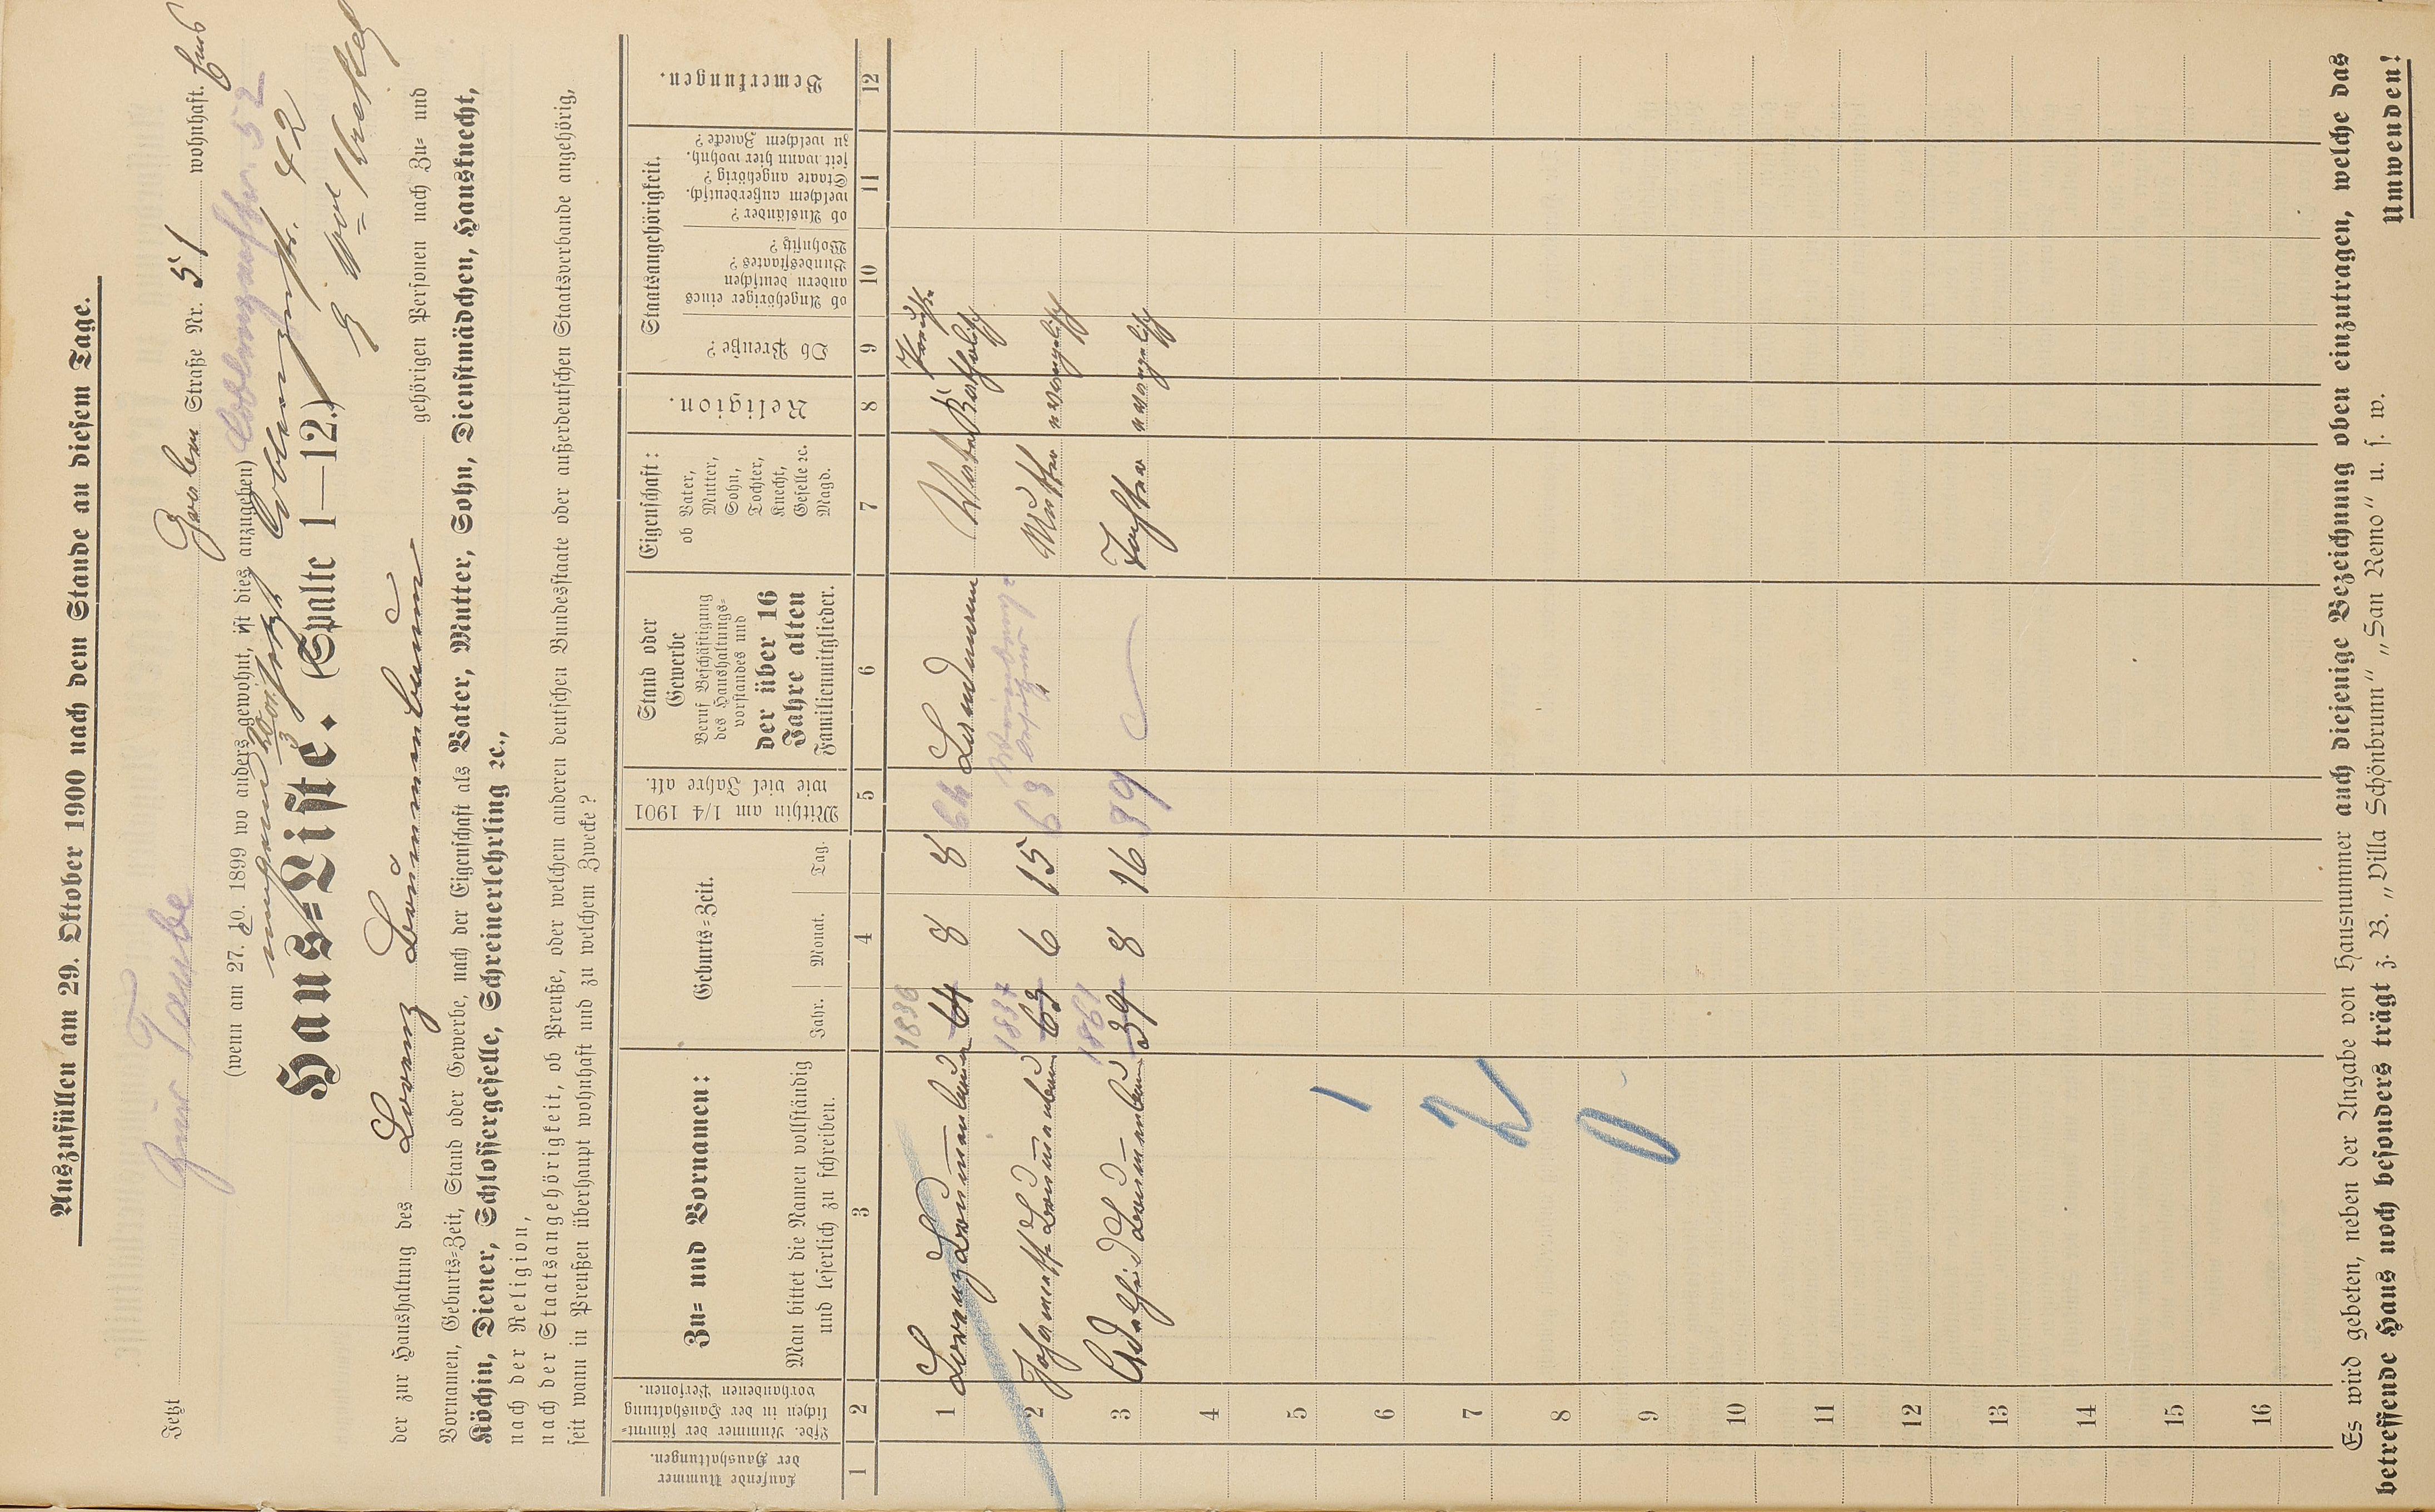 Auszufüllen am 29. Oktober 1900 nach dem Stande an diesem Tage.
Zur Taube
Jetzt Graben Straße Nr. 51 wohnhaft.
(wenn am 27. 10. 1899 wo anders gewohnt, ist dies anzugeben) Coblenzerstr. 52
jetzt Coblenzerstr. 42
Haus-Liste. (Spalte 1—12.)
der zur Haushaltung des Lorenz Baumenbaum gehörigen Personen nach Zu- und
Vornamen, Geburts-Zeit, Stand oder Gewerbe, nach der Eigenschaft als Vater, Mutter, Sohn, Dienstmädchen, Hausknecht,
Köchin, Diener, Schlossergeselle, Schreinerlehrling ec.,
nach der Religion,
nach der Staatsangehörigkeit, ob Preuße, oder welchem anderen deutschen Bundesstaate oder außerdeutschen Staatsverbande angehörig,
seit wann in Preußen überhaupt wohnhaft und zu welchem Zwecke?
Laufende Nummer der Haushaltungen.
Lfde. Nummer der sämmtlichen in der Haushaltung vorhandenen Personen.
Zu- und Vornamen:
Man bittet die Namen vollständig und leserlich zu schreiben.
Geburts-Zeit.
Jahr. Monat. Tag.
Mithin am 1/4 1901 wie viel Jahre alt.
Stand oder Gewerbe
Beruf Beschäftigung des Haushaltungsvorstandes und der über 16 Jahre alten Familienmitglieder.
Eigenschaft:
ob Vater, Mutter, Sohn, Tochter, Knecht, Geselle ec. Magd.
Religion.
Staatsangehörigkeit.
Ob Preuße?
ob Angehöriger eines andern deutschen Bundesstaates? Wohnsitz?
ob Ausländer? welchem außerdeutsch. Staate angehörig? seit wann hier wohnh. zu welchem Zwecke?
Bemerkungen.
1 2 3 4 5 6 7 8 9 10 11 12
1 Lorenz Baumenbaum 1836 64 8 8 64 Vater Katholisch
2 1837 63 6 15 63 Mutter evangelisch
3 Adelheid Baumenbaum 1861 39 8 16 39 Tochter evangelisch
4
5
6
7
8
9
10
11
12
13
14
15
16
1
2
0
Es wird gebeten, neben der Angabe von Hausnummer auch diejenige Bezeichnung oben einzutragen, welche das
betreffende Haus noch besonders trägt z. B. „Villa Schönbrunn" „San Remo" u. s. w.
Umwenden!